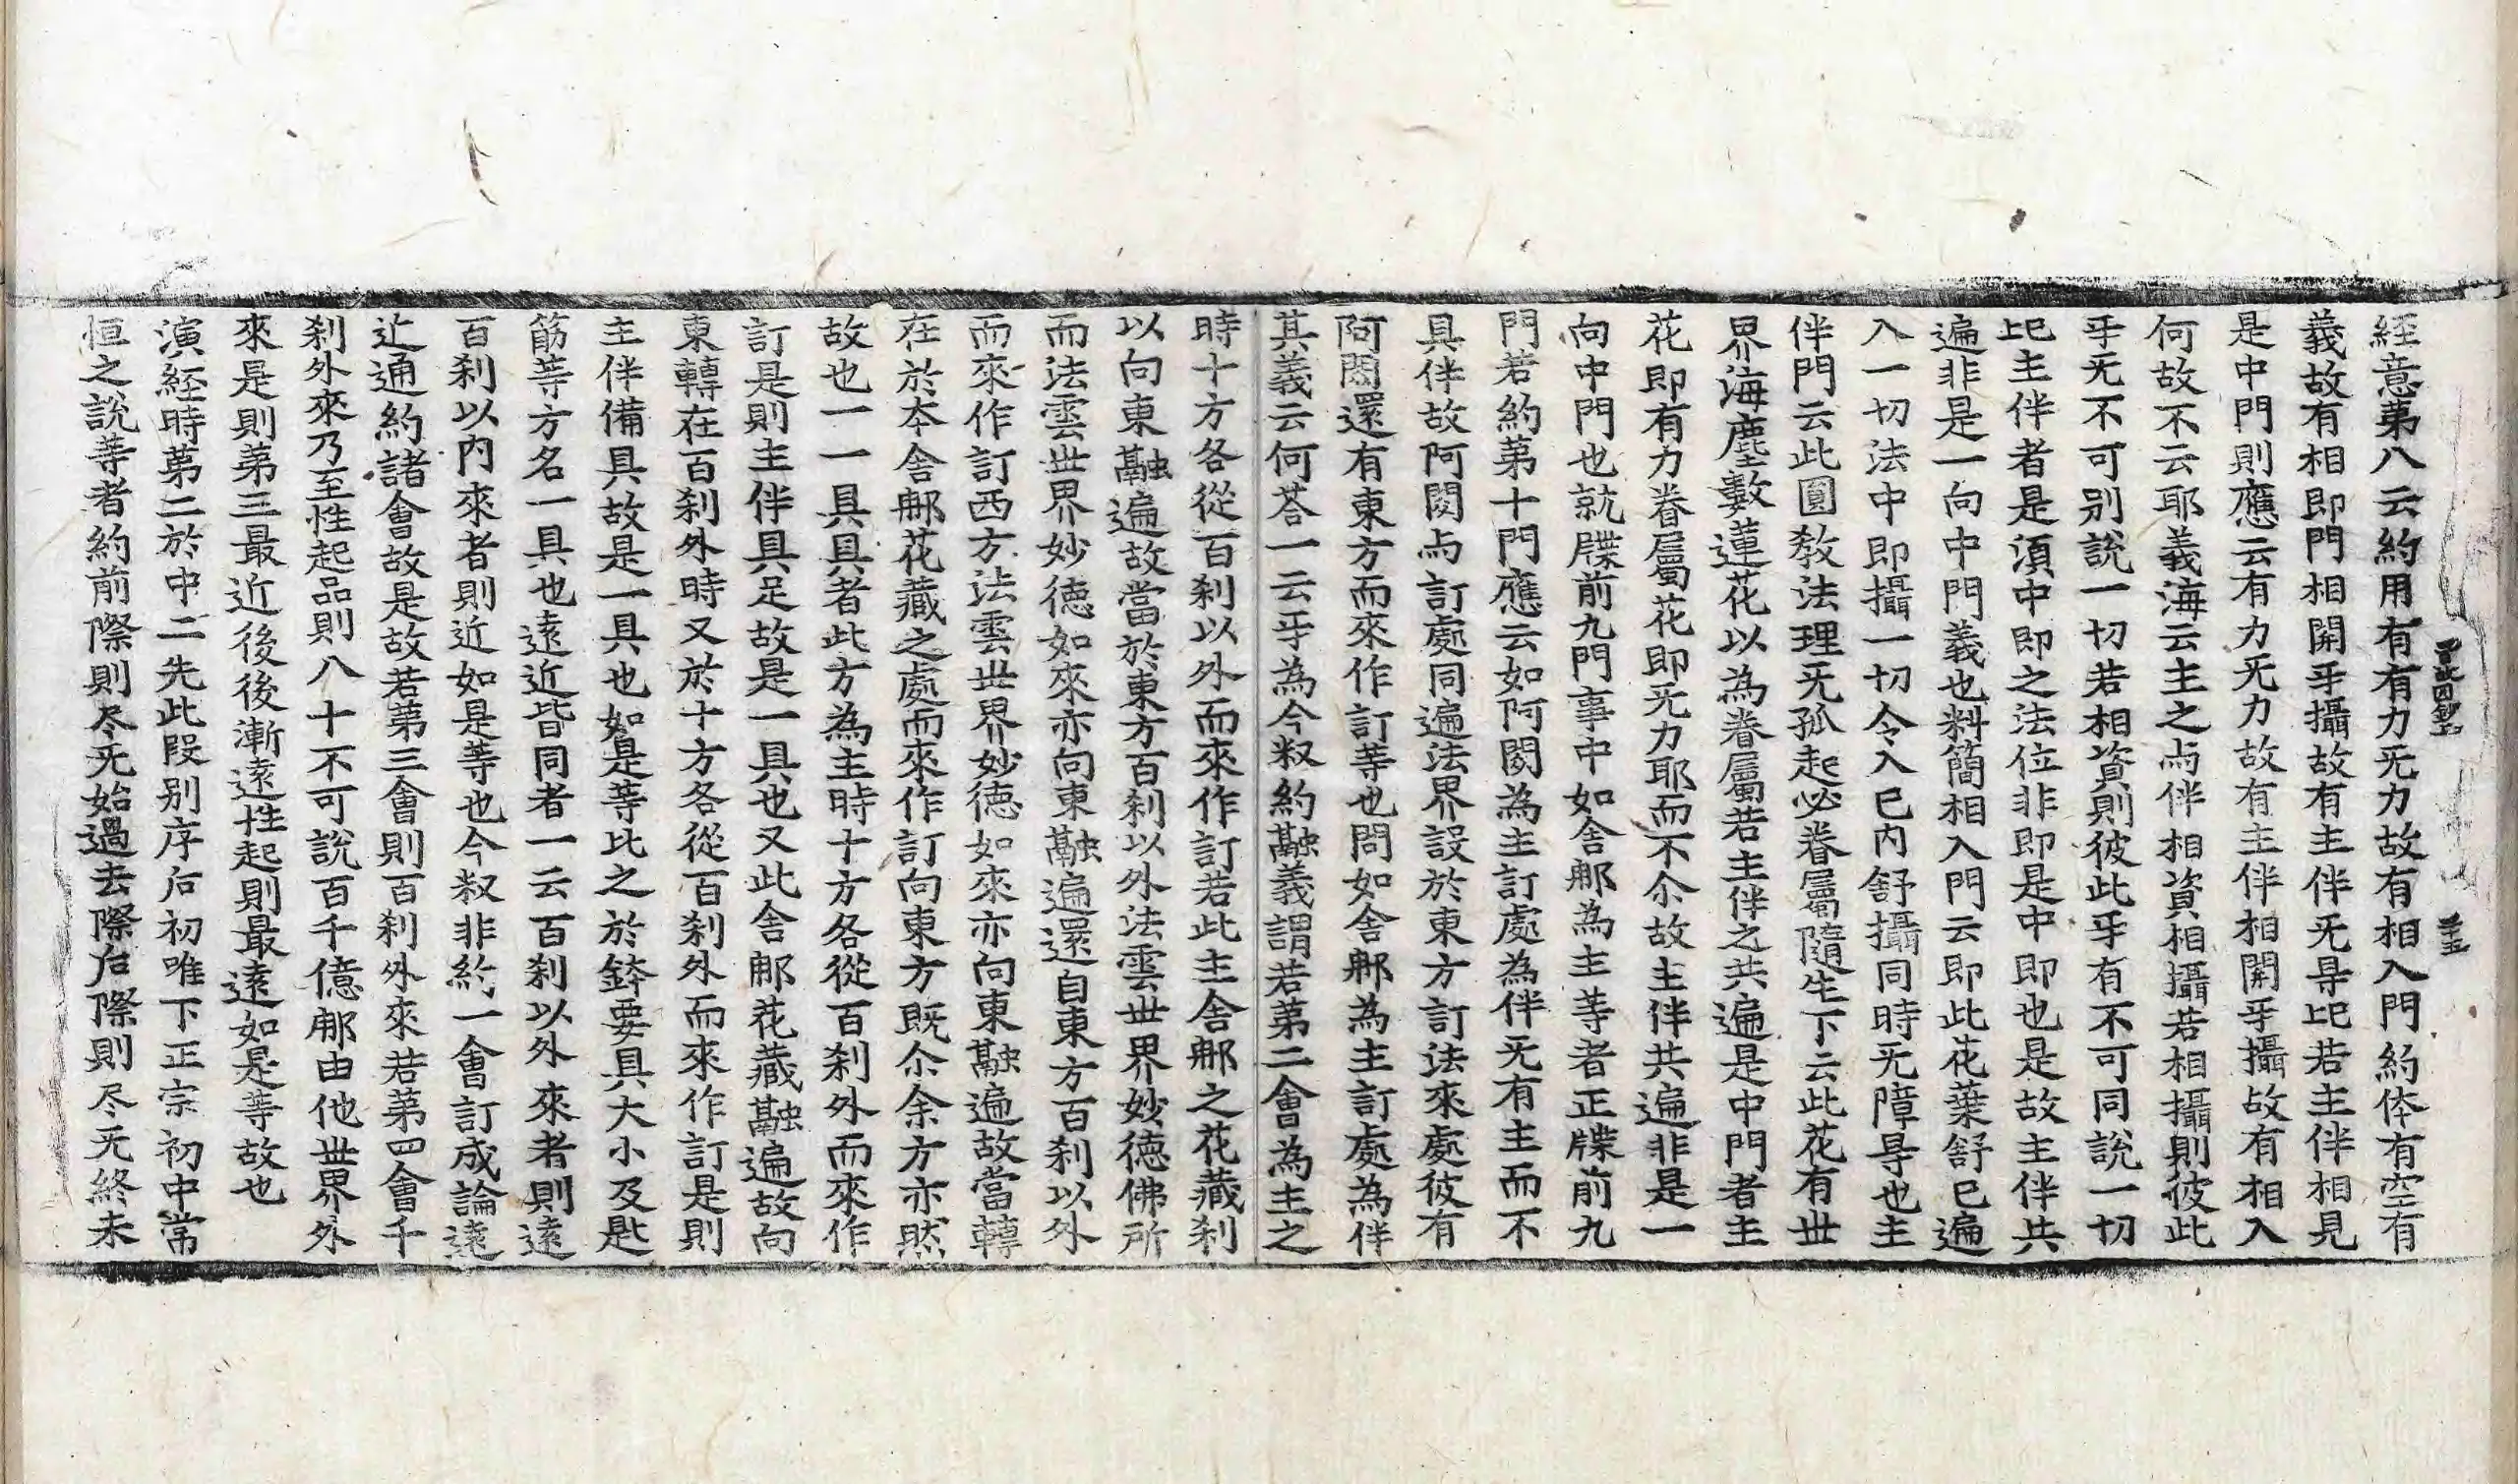 經意第八云約用有有力旡力故有相入門約体有空有
義故有相即門相開乎攝故有主伴旡㝵比若主伴相見
是中門則應云有力旡力故有主伴相開乎攝故有相入
何故不云耶義海云主之与伴相資相攝若相攝則彼此
乎旡不可別說一切若相資則彼此乎有不可同說一切
比主伴者是湏中即之法位非即是中即也是故主伴共
遍非是一向中門義也料簡相入門云即此花葉舒已遍
入一切法中即攝一切令入已內舒攝同時旡障㝵也主
伴門云此圓教法理旡孤起必眷屬隨生下云此花有世
界海塵數蓮花以為眷屬若主伴之共遍是中門者主
花即有力眷屬花即旡力耶而不尒故主伴共遍非是一
向中門也就牒前九門事中如舍那為主等者正牒前九
門若約第十門應云如阿閦為主訂處為伴旡有主而不
具伴故阿閦与訂處同遍法界設於東方訂法來處彼有
阿閦還有東方而來作訂等也問如舍那為主訂處為伴
其義云何荅一云乎為今叙約融義謂若第二會為主之
時十方各從百刹以外而來作訂若此主舍那之花藏刹
以向東融遍故當於東方百刹以外法雲世界妙德佛所
而法雲世界妙德如來亦向東融遍還自東方百刹以外
而來作訂西方法雲世界妙德如來亦向東融遍故當轉
在於本舍那花藏之處而來作訂向東方既尒余方亦然
故也一一具具者此方為主時十方各從百刹外而來作
訂是則主伴具足故是一具也又此舍那花藏融遍故向
東轉在百刹外時又於十方各從百刹外而來作訂是則
主伴備具故是一具也如是等比之於鉢要具大小及匙
筯等方名一具也遠近皆同者一云百刹以外來者則遠
百刹以內來者則近如是等也今叙非約一會訂成論遠
近通約諸會故是故若第三會則百刹外來若第四會千
刹外來乃至性起品則八十不可說百千億那由他世界外
來是則第三最近後後漸遠性起則最遠如是等故也
演經時第二於中二先此段別序后初唯下正宗初中常
恒之說等者約前際則尽旡始過去際后際則尽旡終未